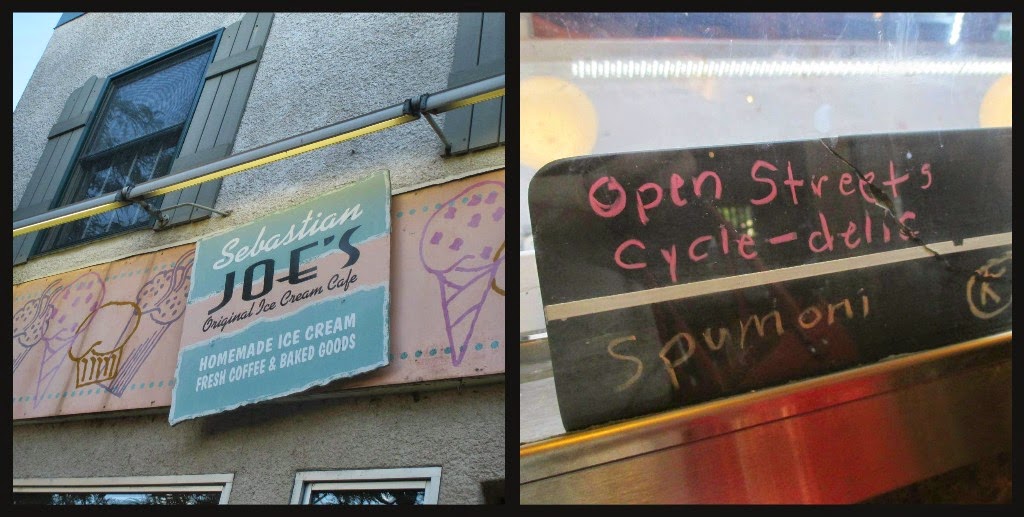 Sebastian
JOE'S
Original Ice Cream Cafe
HOMEMADE ICE CREAM
FRESH COFFEE & BAKED GOODS
Open Streets
Cycle-delic
Spumoni
K